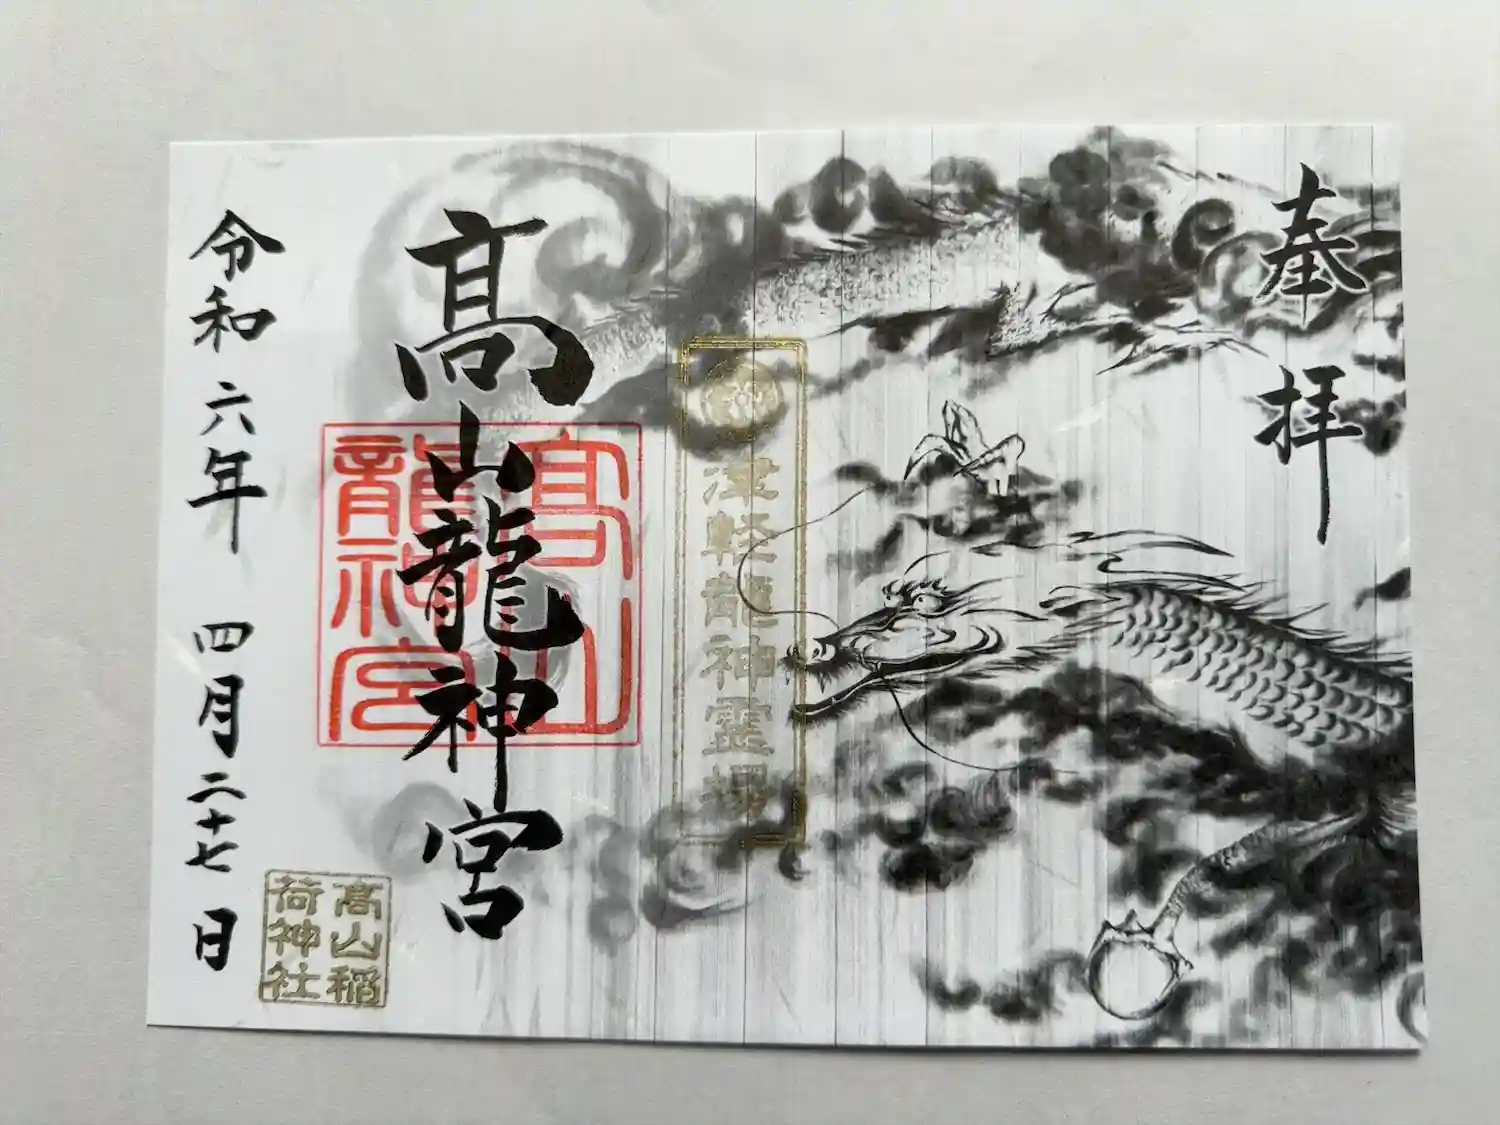 奉拝
津軽龍神霊場
髙山龍神宮
髙山龍神宮
髙山稲荷神社
令和六年 四月二十七日